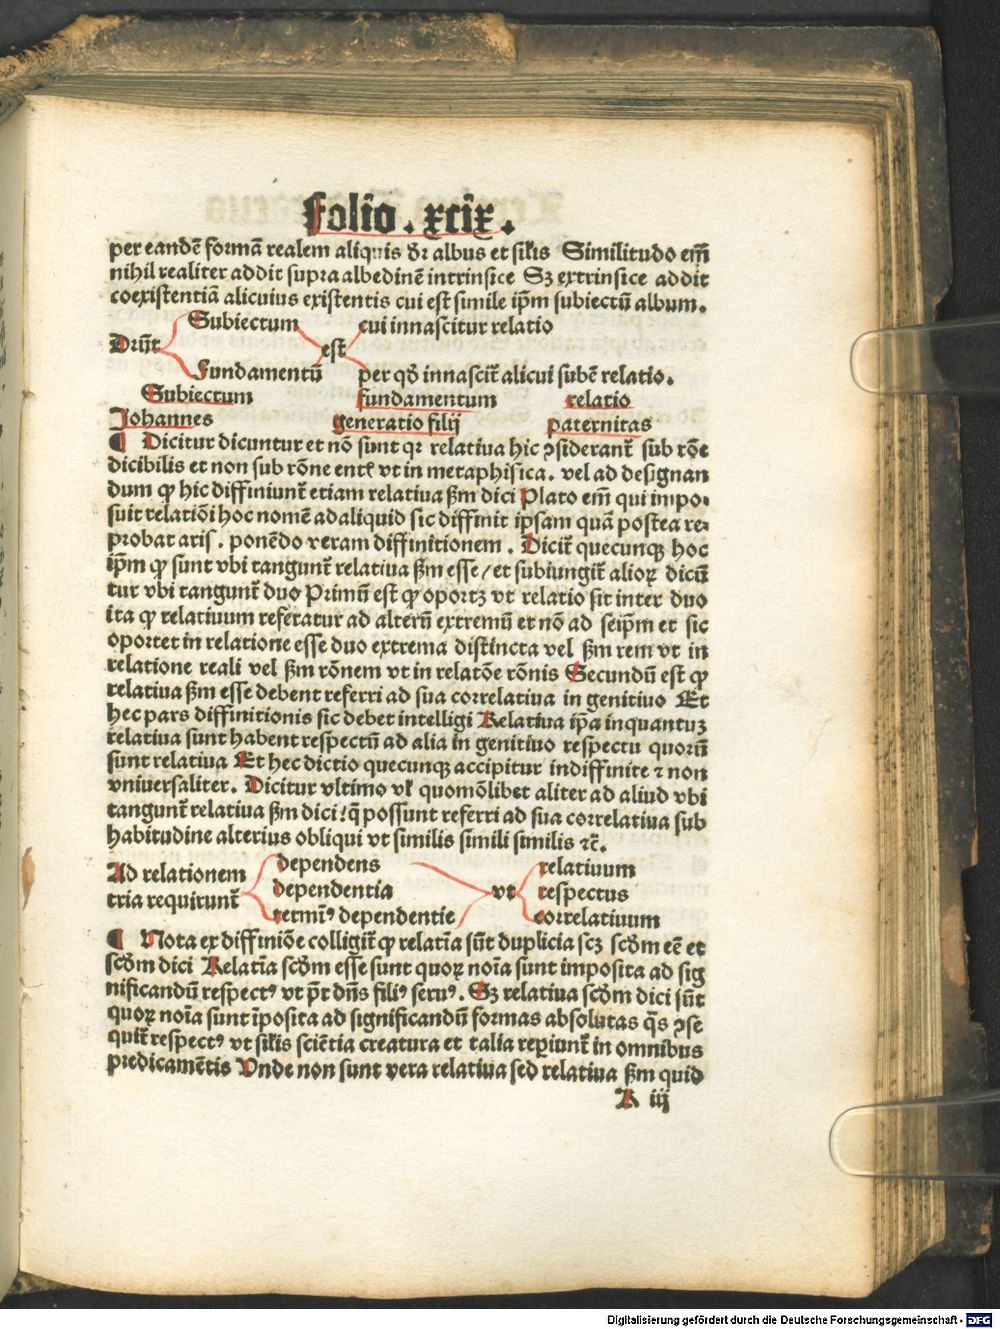 folio . xcix .
per eandē formā realem aliquis dr̄ albus et sil̄is Similitudo em̄
nihil realiter addit supra albedinē intrinsice Sꝫ extrinsice addit
coexistentiā alicuius existentis cui est simile ip̄m subiectū album.
Subiectum cui innascitur relatio
Driūt est
Fundamentū per qd̄ innascit̄ alicui subē relatio.
Subiectum fundamentum relatio
Johannes generatio filij paternitas
¶ Dicitur dicuntur et nō sunt qꝛ relatiua hic ꝯsiderant̄ sub rōe
dicibilis et non sub rōne entꝭ vt in metaphisica. vel ad designan
dum ꝙ hic diffiniunt̄ etiam relatiua ẜm dici Plato em̄ qui impo-
suit relatiōi hoc nomē adaliquid sic diffinit ipsam quā postea re-
probat aris. ponēdo veram diffinitionem. Dicit̄ quecunqꝫ hoc
ip̄m ꝙ sunt vbi tangunt̄ relatiua ẜm esse / et subiungit̄ alioꝝ dicū
tur vbi tangunt̄ duo Primū est ꝙ oportꝫ vt relatio sit inter duo
ita ꝙ relatiuum referatur ad alterū extremū et nō ad seip̄m et sic
oportet in relatione esse duo extrema distincta vel ẜm rem vt in
relatione reali vel ẜm rōnem vt in relatōe rōnis Secundū est ꝙ
relatiua ẜm esse debent referri ad sua correlatiua in genitiuo Et
hec pars diffinitionis sic debet intelligi Relatiua ip̄a inquantuꝫ
relatiua sunt habent respectū ad alia in genitiuo respectu quorū
sunt relatiua Et hec dictio quecunqꝫ accipitur indiffinite ⁊ non
vniuersaliter. Dicitur vltimo vł quomōlibet aliter ad aliud vbi
tangunt̄ relatiua ẜm dici / q̄ possunt referri ad sua correlatiua sub
habitudine alterius obliqui vt similis simili similis ⁊c̄.
dependens relatiuum
Ad relationem
dependentia vt respectus
tria requirunt̄
termīꝰ dependentie correlatiuum
¶ Nota ex diffiniōe colligit̄ ꝙ relatīa sūt duplicia scꝫ scd̄m eē et
scd̄m dici Relatīa scd̄m esse sunt quoꝝ noīa sunt imposita ad sig
nificandū respectꝰ vt pr̄ dn̄s filiꝰ seruꝰ. Sꝫ relatiua scd̄m dici sūt
quoꝝ noīa sunt īposita ad significandū formas absolutas q̄s ꝯse
quit̄ respectꝰ vt sil̄is sciētia creatura et talia reperiunt̄ in omnibus
predicamētis Vnde non sunt vera relatiua sed relatiua ẜm quid
A iij
Digitalisierung gefördert durch die Deutsche Forschungsgemeinschaft - DFG